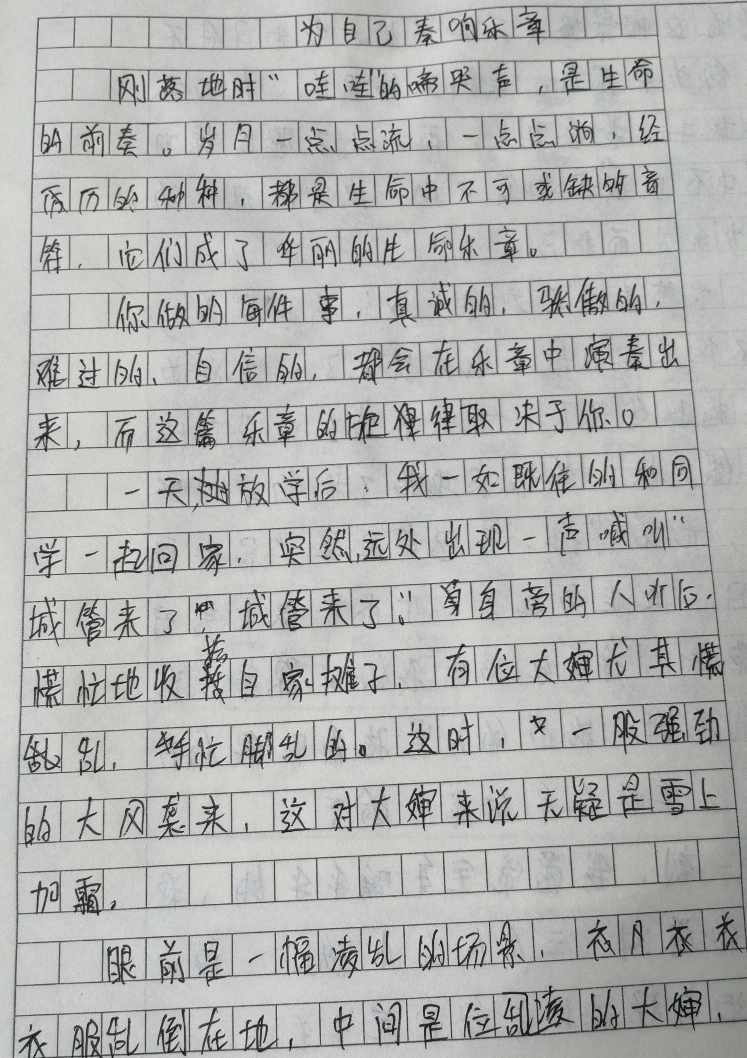 为自己奏响乐章
刚落地时“哇哇”的啼哭声，是生命
的前奏。岁月一点点流，一点点淌，经
历的种种，都是生命中不可或缺的音
符，它们成了华丽的生命乐章。
你做的每件事，真诚的，骄傲的，
难过的，自信的，都会在乐章中演奏出
来，而这篇乐章的旋律取决于你。
一天放学后，我一如既往的和同
学一起回家，突然，远处出现一声喊叫“
城管来了，城管来了”身旁的人听后，
慌忙地收拾自家摊子，有位大婶尤其慌
乱，手忙脚乱的。这时，又一股强劲
的大风袭来，这对大婶来说无疑是雪上
加霜，
眼前是一幅凌乱的场景，衣
衣服乱倒在地，中间是位凌乱的大婶，